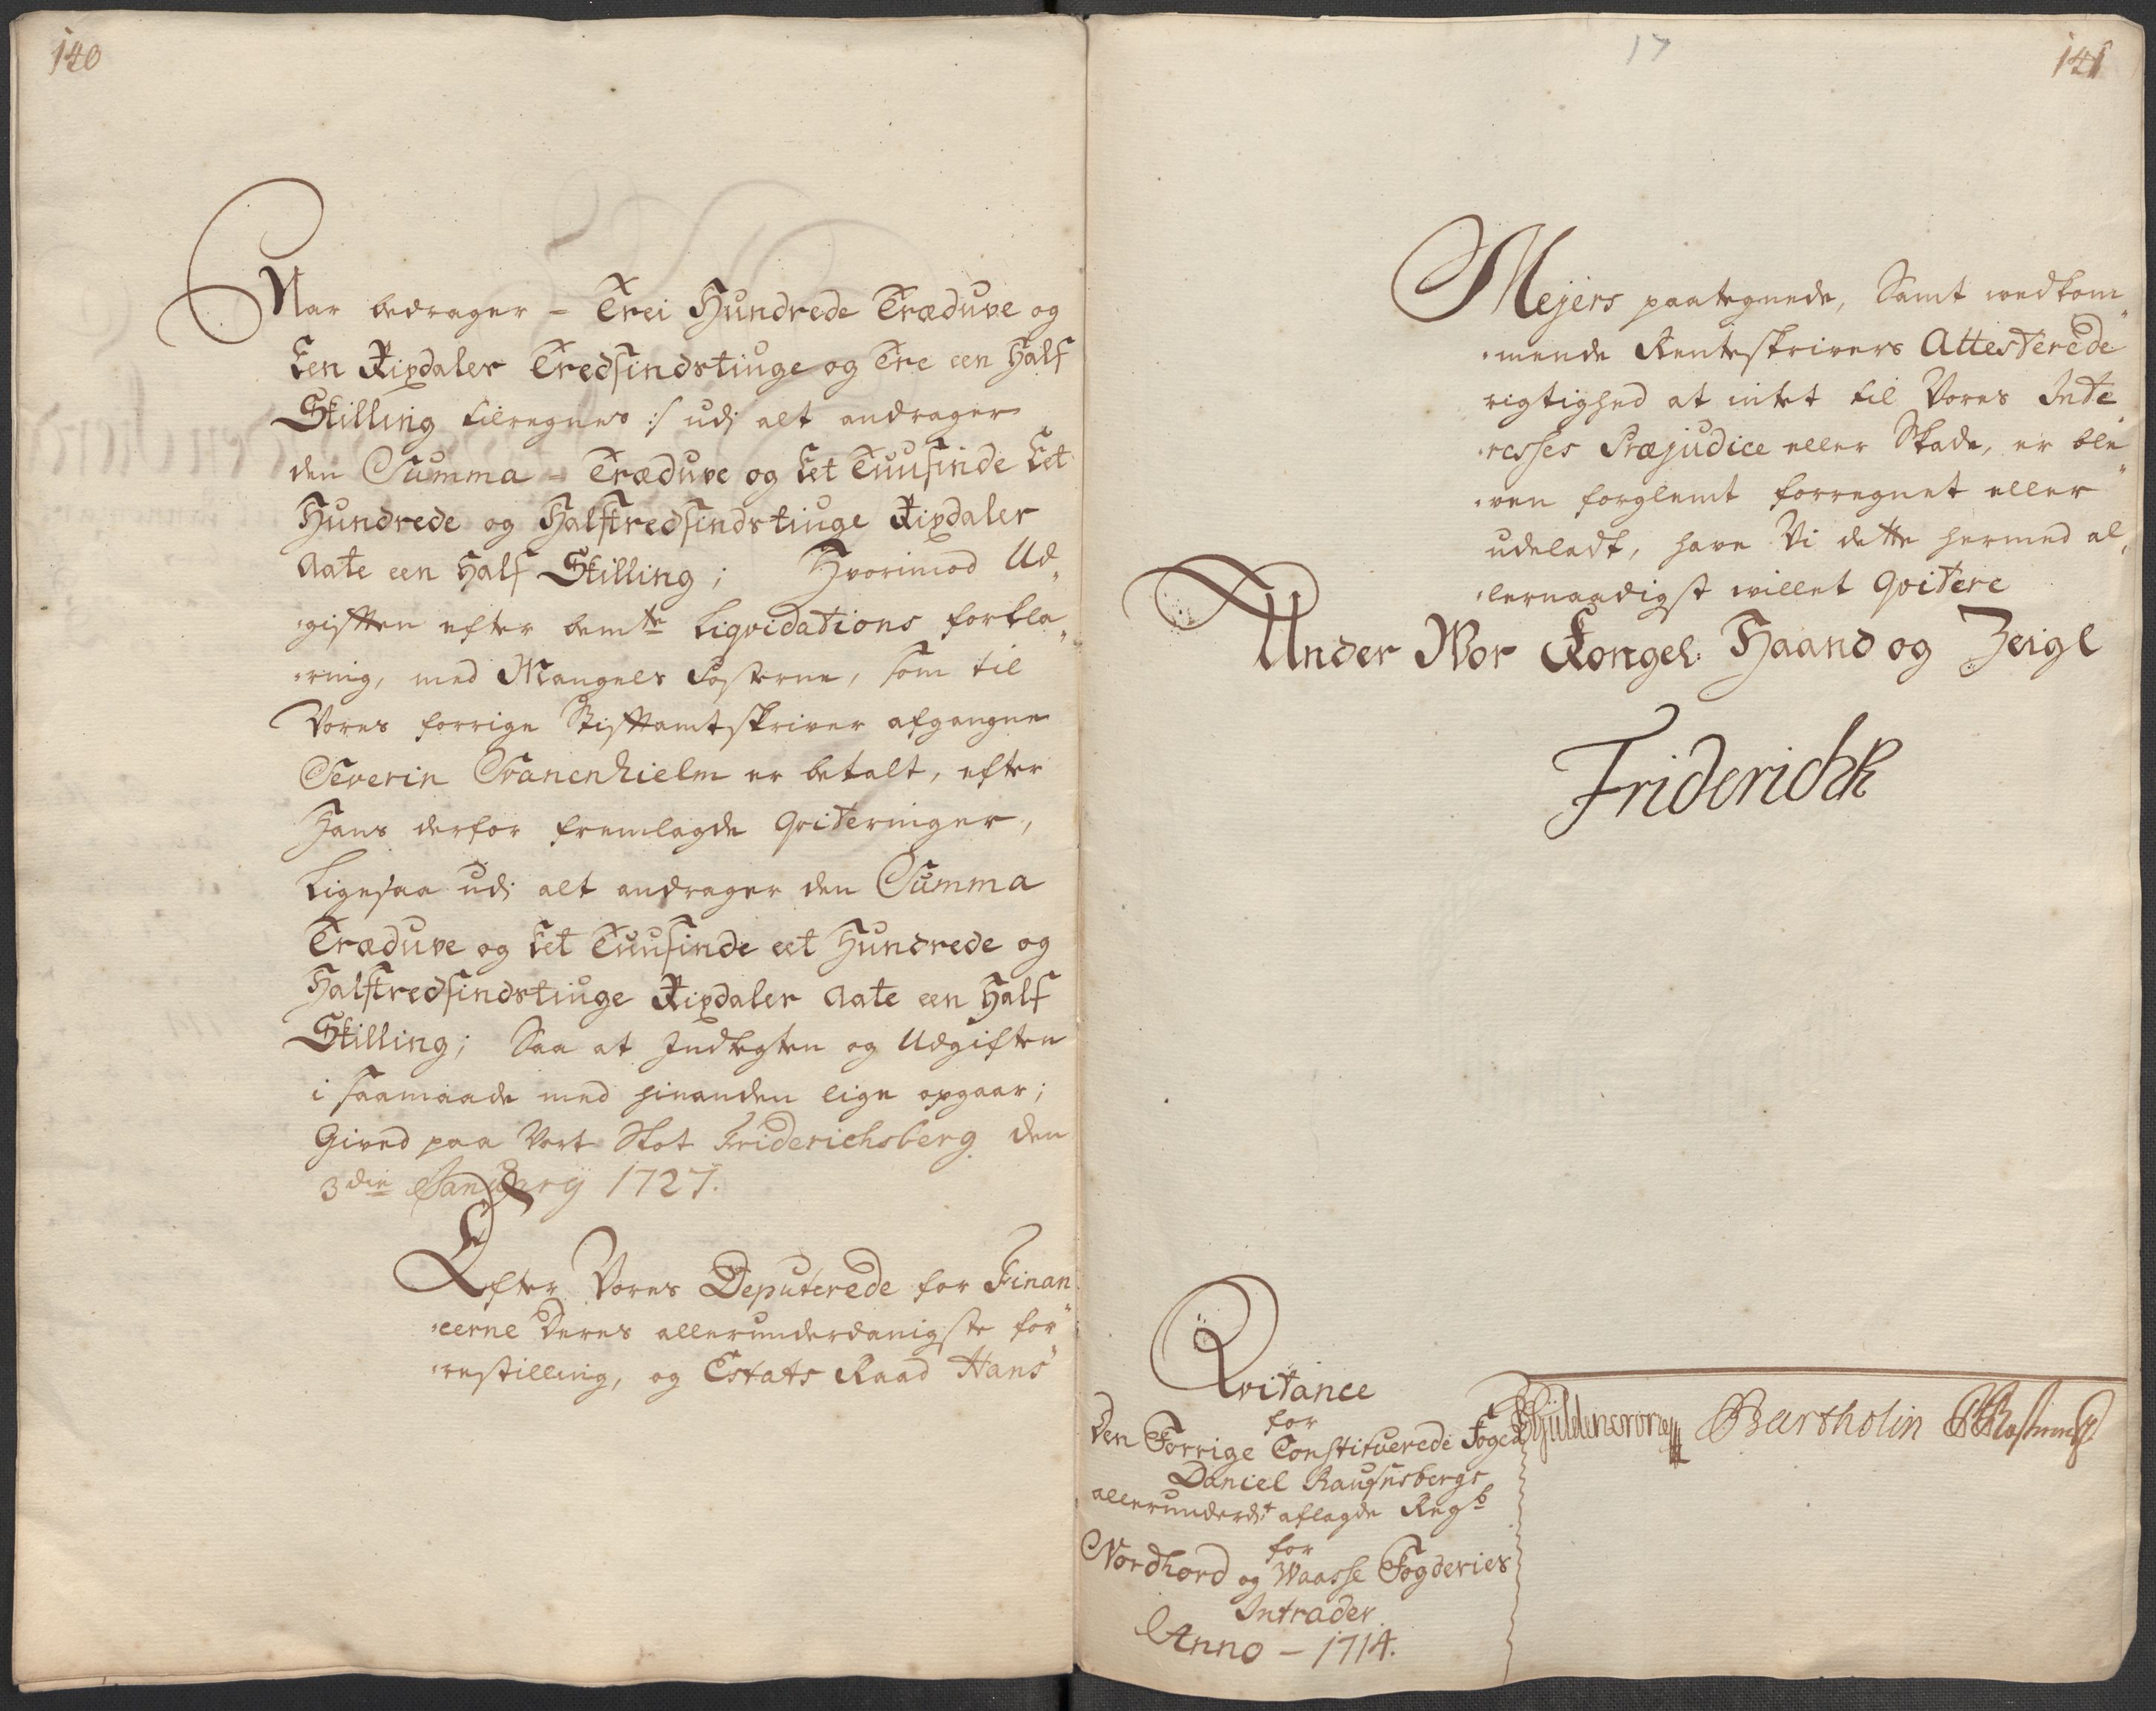 140
Aar bedrager - Trei Hundrede Træduve og
Een Rixdaler Tredsindstiuge og Tre een Half
Skilling tilregnes :/ udj alt andrager
den Summa - Træduve og Eet Tuusinde Eet
Hundrede og Halftredsindstiuge Rixdaler
Aate een Half Skilling; Hvorimod Ud„
„gifften efter bemte Liqvidations forkla„
„ring, med Mangels Posterne, som til
Vores forrige Stifftamtskriver afgangne
Severin Svanenhielm er betalt, efter
Hans derfor fremlagde Qviteringer,
Ligesaa udj alt andrager den Summa
Træduve og Eet Tuusinde eet Hundrede og
Halftredsindstiuge Rixdaler Aate een Half
Skilling; Saa at Indtegten og Udgiften
i saamaade med hinanden lige opgaar;
Gived paa Vort Slot Friderichsberg den
3die January 1727.
Efter Vores Deputerede for Finan„
„cerne Deres allerunderdanigste for„
„restilling, og Estats Raad Hans
17
141
Mejers paategnede, Samt vedkom„
„mende Renteskrivers Attesterede
rigtighed at intet til Vores Inte„
„resses Præjudice eller Skade, er ble„
„ven forglemt forregnet eller
udeladt, have Vi dette hermed al„
„lernaadigst villet Qvitere
Under Vor Kongel: Haand og Zeigl
Friderich R
Qvitance
for
Den Forrige Constituerede Foged
Daniel Raufnsbergs
allerunderdt aflagde Regsb
for
Nordhord og Waasse Fogderies
Intrader
Anno - 1714.
Güldencrone Bartholin